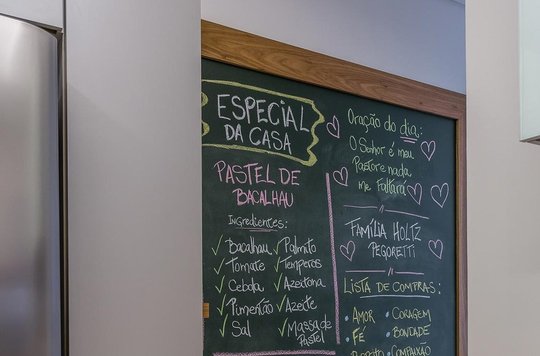 ESPECIAL
DA CASA
PASTEL DE
BACALHAU
INgREdiENTES:
✓ Bacalhau ✓ Palmito
✓ Tomate ✓ Temperos
✓ Cebola ✓ Azeitona
✓ Pimentão ✓ Azeite
✓ Sal ✓ Massa de
Pastel
Oração do dia:
O Senhor é meu
Pastor e nada
me Faltará
FAMÍLIA HOLTZ
PEGORETTI
LISTA DE COMPRAS:
• AMOR • CORAGEM
• FÉ • BONDADE
COMPAIXÃO